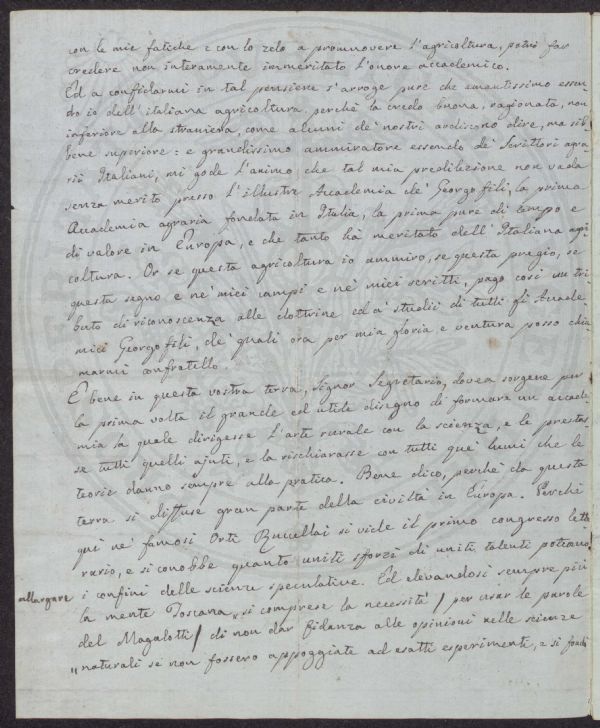 con le mie fatiche e con lo zelo a promuovere l'agricoltura, potrò far
credere non interamente immeritato l'onore accademico.
Ed a confidarmi in tal pensiere s'arroge pure che amantissimo essen-
do io dell'italiana agricoltura, perchè la credo buona, ragionata, non
inferiore alla straniera, come alcuni de' nostri ardiscono dire, ma sib-
bene superiore: e grandissimo ammiratore essendo de' Scrittori agra-
rii Italiani, mi gode l'animo, che tal mia predilezione non vada
senza merito presso l'illustre Accademia de' Georgofili, la prima
Accademia agraria fondata in Italia, la prima pure di tempo e
di valore in Europa, e che tanto ha meritato dell'Italiana agri
coltura. Or se questa agricoltura io ammiro, se questa pregio, se
questa segno e ne' miei campi e ne' miei scritti, pago così un tri
buto di riconoscenza alle dottrine ed a' studii di tutti gli Accade-
mici Georgofili, de' quali ora per mia gloria e ventura posso chia
marmi confratello.
E bene in questa vostra terra, Signor Segretario, dovea sorgere per
la prima volta il grande ed utile disegno di formare un accade-
mia la quale dirigesse l'arte rurale con la scienza, e le prestas
se tutti quelli ajuti, e la rischiarasse con tutti que' lumi che le
teorie danno sempre alla pratica. Bene dico, perchè da questa
terra si diffuse gran parte della civiltà in Europa. Perchè
qui ne' famosi Orti Rucellai si vide il primo congresso lette
rario, e si conobbe quanto uniti sforzi di uniti talenti poteano
allargare i confini delle scienze speculative. Ed elevandosi sempre più
la mente Toscana, si comprese la necessità / per usar le parole
del Magalotti / di non dar fidanza alle opinioni nelle scienze
"naturali se non fossero appoggiate ad esatti esperimenti, e si fondò